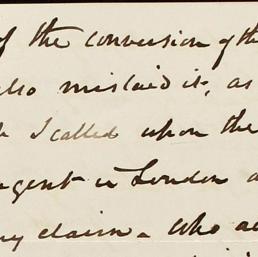 of the conversion of the
also mislaid it, as
I called upon the
agent in London
my claim. who